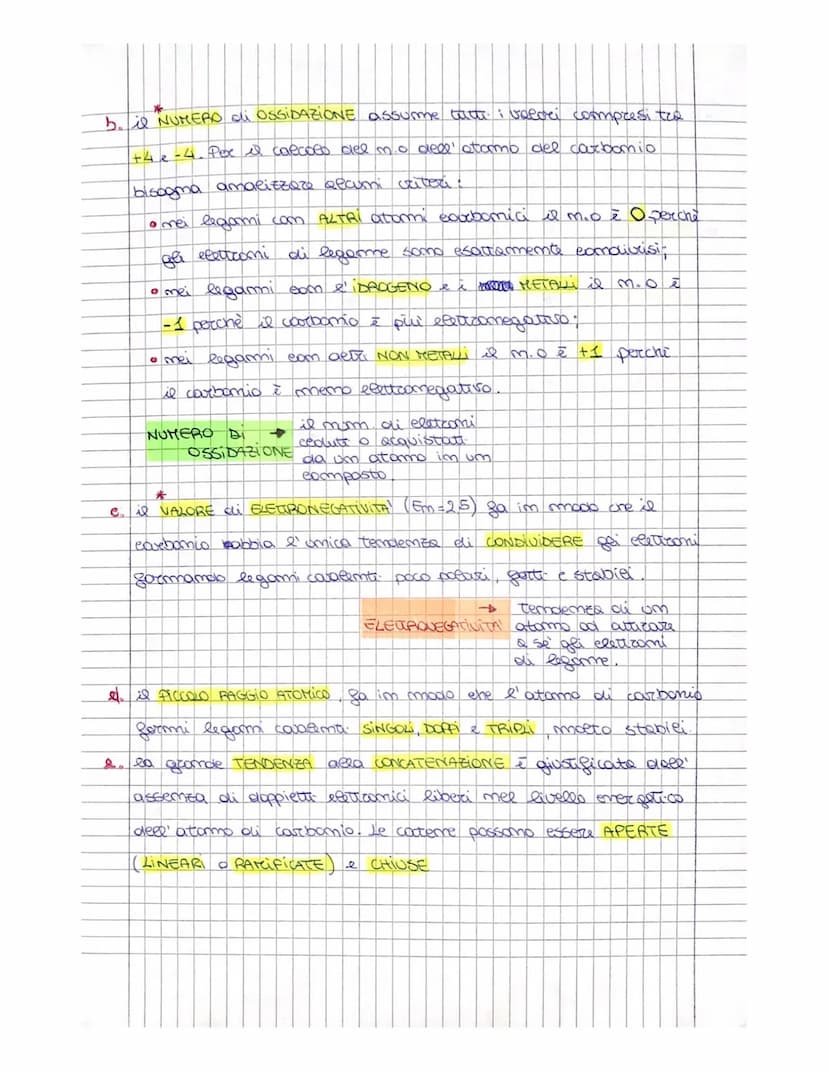 *
b. il NUMERO di OSSIDAZIONE assume tutti i valori compresi tra
+4 e -4. Per il calcolo del n.o dell'atomo del carbonio
bisogna analizzare alcuni criteri:
• nei legami con ALTRI atomi carbonici il n.o è 0 perchè
gli elettroni di legame sono esattamente condivisi;
• nei legami con l'IDROGENO e i METALLI il n.o è
-1 perchè il carbonio è più elettronegativo;
• nei legami con altri NON METALLI il n.o è +1 perchè
il carbonio è meno elettronegativo.
NUMERO DI OSSIDAZIONE → il num. di elettroni
ceduti o acquistati
da un atomo in un
composto.
*
c. il VALORE di ELETTRONEGATIVITA' (En=2,5) fa in modo che il
carbonio abbia l'unica tendenza di CONDIVIDERE gli elettroni
formando legami covalenti poco polari, forti e stabili.
ELETTRONEGATIVITA' → tendenza di un
atomo ad attirare
a sè gli elettroni
di legame.
d. il PICCOLO RAGGIO ATOMICO, fa in modo che l'atomo di carbonio
formi legami covalenti SINGOLI, DOPPI e TRIPLI, molto stabili.
e. la grande TENDENZA alla CONCATENAZIONE è giustificata dall'
assenza di doppietti elettronici liberi nel livello energetico
dell'atomo di carbonio. Le catene possono essere APERTE
(LINEARI o RAMIFICATE) e CHIUSE